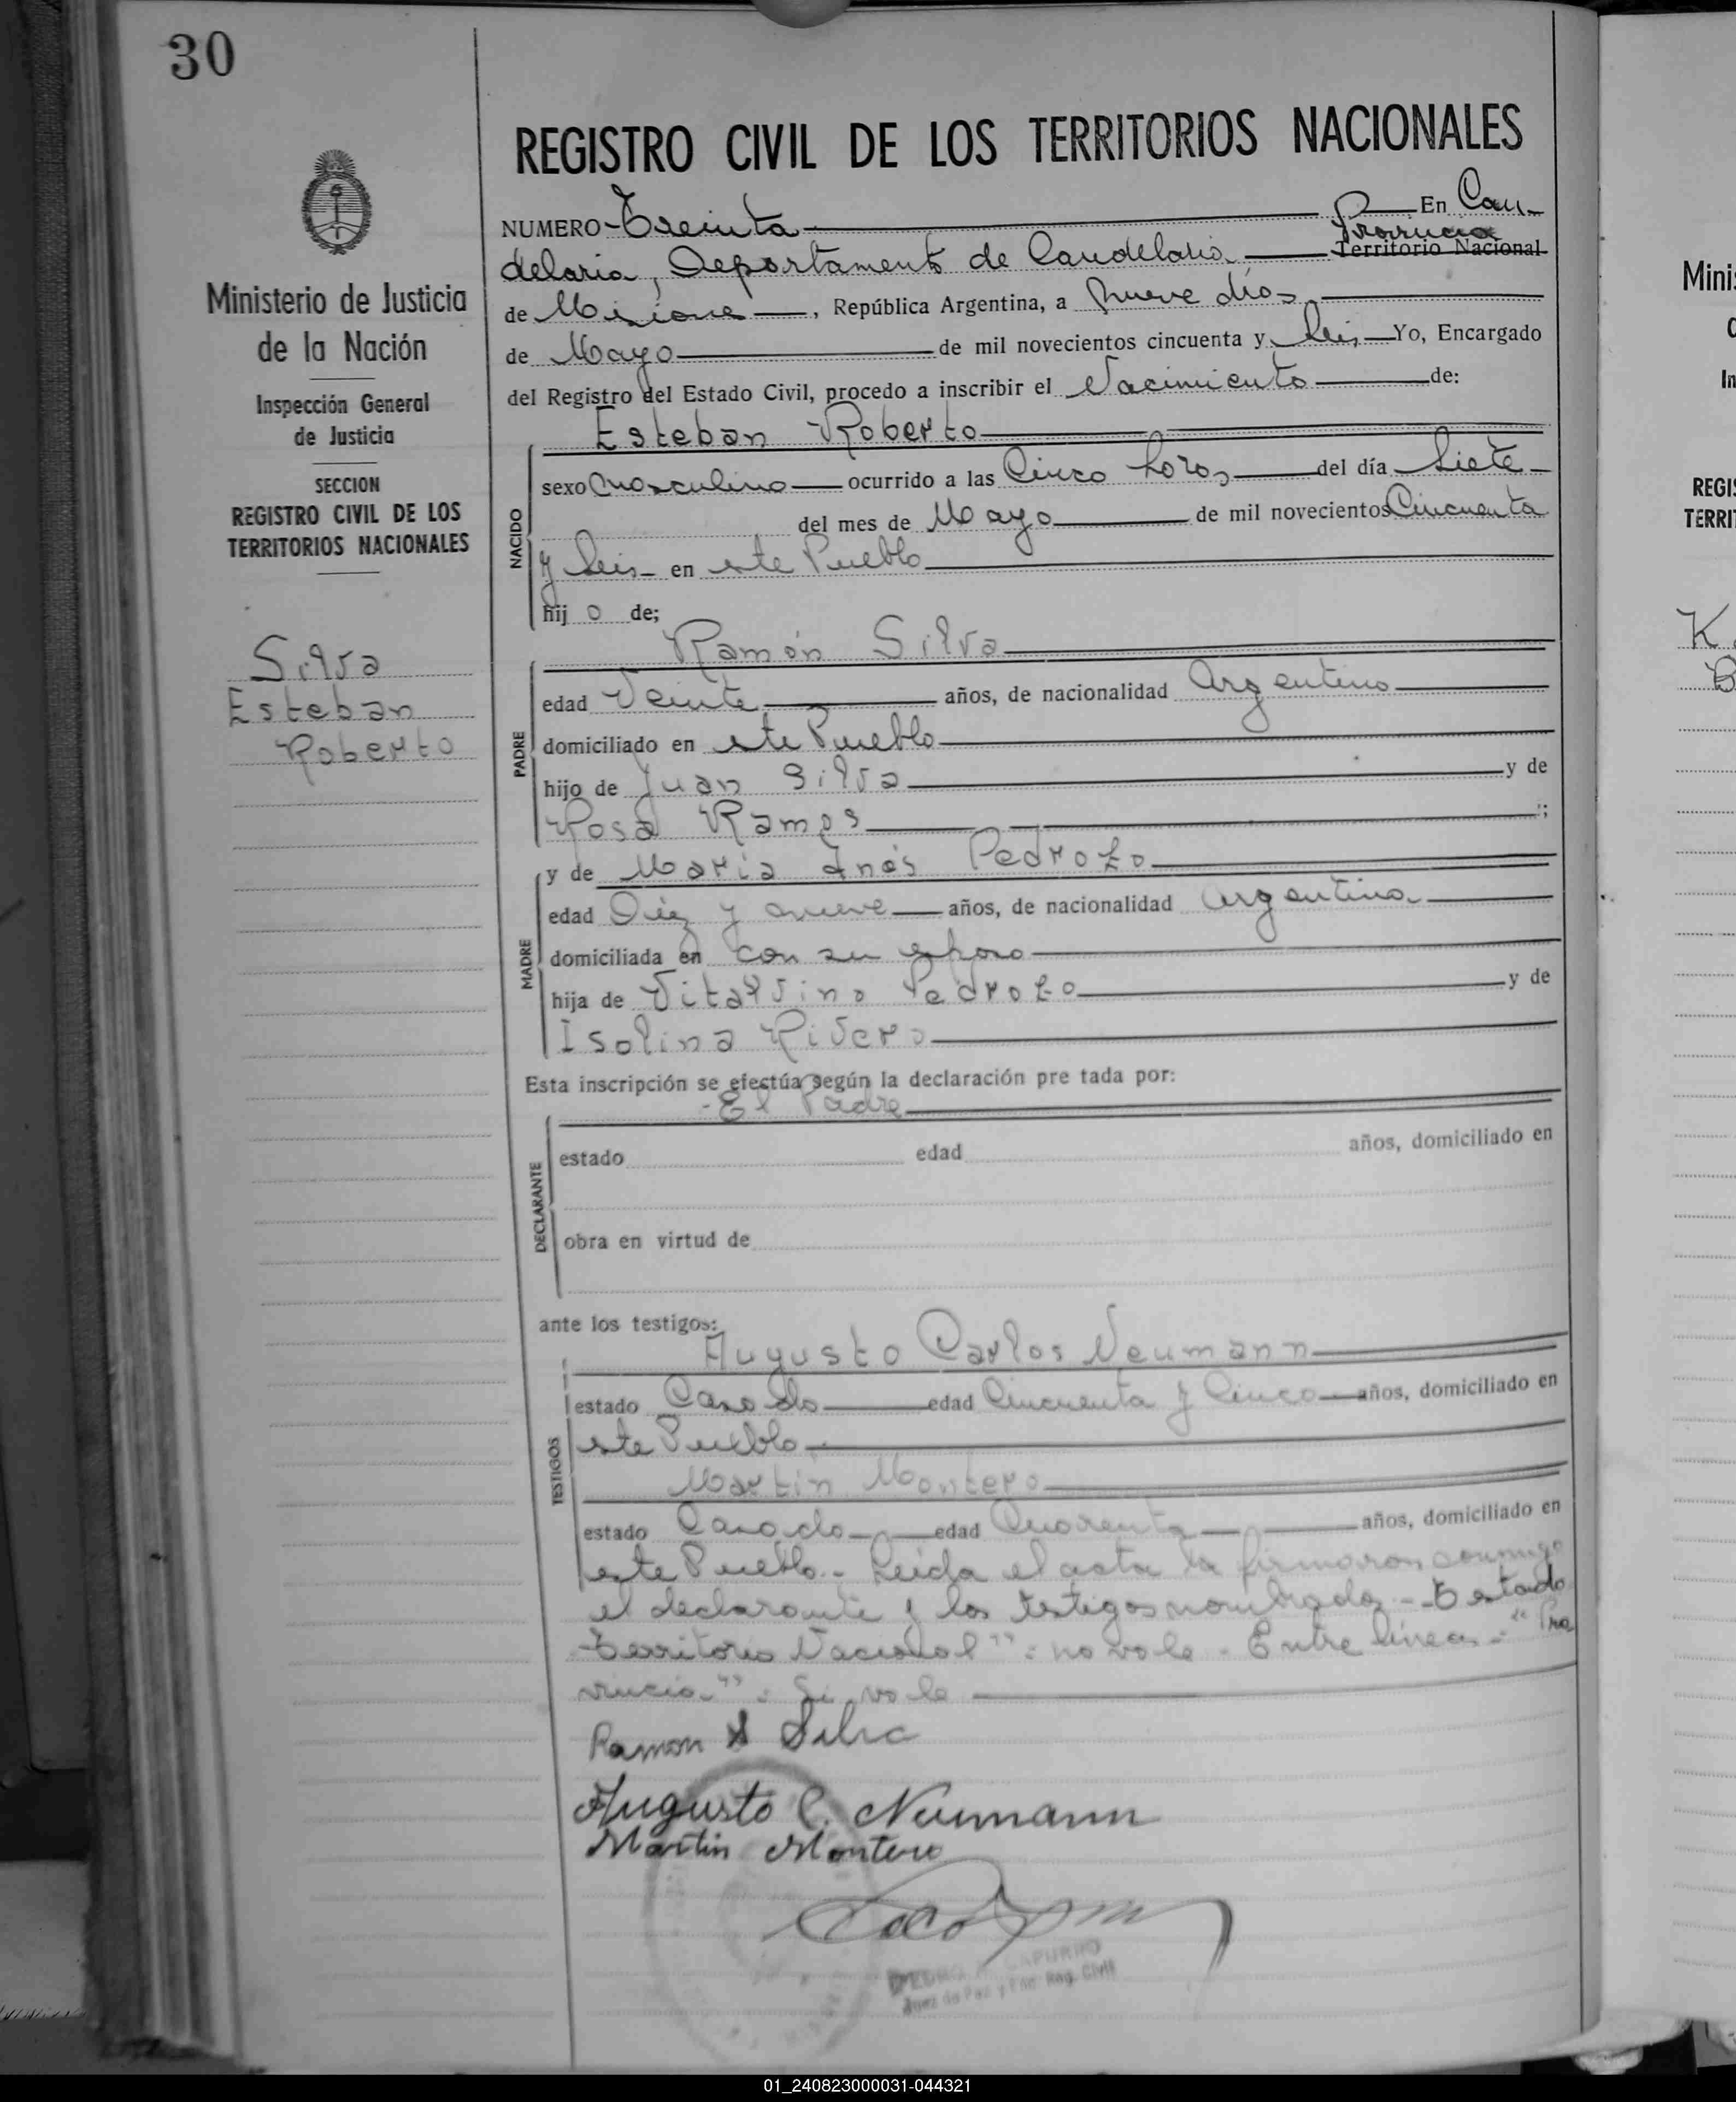 30
REGISTRO CIVIL DE LOS TERRITORIOS NACIONALES
Ministerio de Justicia
de la Nación
Inspección General
de Justicia
SECCION
REGISTRO CIVIL DE LOS
TERRITORIOS NACIONALES
Silva
Esteban
Roberto
NUMERO Treinta En Can-
Provincia
delaria, Departamento de Candelaria Territorio Nacional
de Misiones, República Argentina, a nueve días
de Mayo de mil novecientos cincuenta y Seis Yo, Encargado
del Registro del Estado Civil, procedo a inscribir el Nacimiento de:
Esteban Roberto
NACIDO
sexo masculino ocurrido a las Cinco horas del día Siete
del mes de Mayo de mil novecientos Cincuenta
y Seis en este Pueblo
hij o de;
Ramón Silva
PADRE
edad Veinte años, de nacionalidad Argentino
domiciliado en este Pueblo
hijo de Juan Silva y de
Rosa Ramos ;
MADRE
y de María Inés Pedrozo
edad Diez y nueve años, de nacionalidad Argentina
domiciliada en con su esposo
hija de Vitalvino Pedrozo y de
Isolina Rivero
Esta inscripción se efectúa según la declaración pre tada por:
- El Padre
DECLARANTE
estado edad años, domiciliado en
obra en virtud de
ante los testigos:
Augusto Carlos Neumann
TESTIGOS
estado Casado edad Cincuenta y Cinco años, domiciliado en
este Pueblo
Martín Montero
estado Casado edad Cuarenta años, domiciliado en
este Pueblo.- Leída el acta la firmaron conmigo
el declarante y los testigos nombrados - Testado
Territorio Nacional": no vale - Entre líneas: "Pro
vincia": Si vale
Ramon S Silva
Augusto C. Neumann
Martin Montero
PEDRO CAPURRO
Juez de Paz y Enc. Reg. Civil
Minis
REGIS
TERRI
01_240823000031-044321